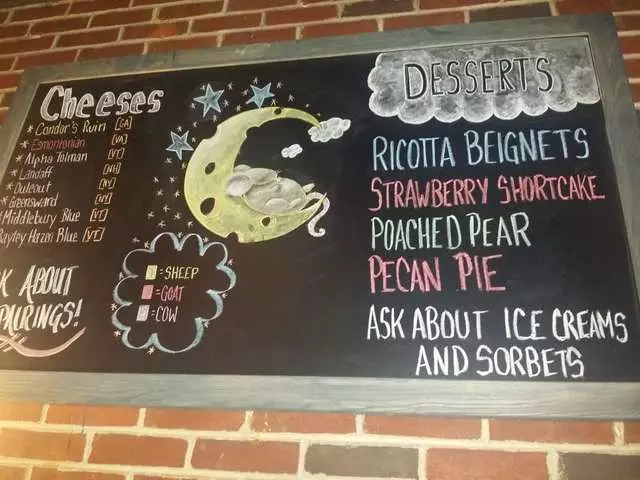 Cheeses
* Candor's Ruin [GA]
* Esmontonian [VA]
* Alpha Tolman [VT]
* Landaff [NH]
* Ouleout [NY]
* Greensward [NY]
*Middlebury Blue [VT]
Bayley Hazen Blue [VT]
K ABOUT
PAIRINGS!
=SHEEP
=GOAT
=COW
DESSERTS
RICOTTA BEIGNETS
STRAWBERRY SHORTCAKE
POACHED PEAR
PECAN PIE
ASK ABOUT ICE CREAMS
AND SORBETS